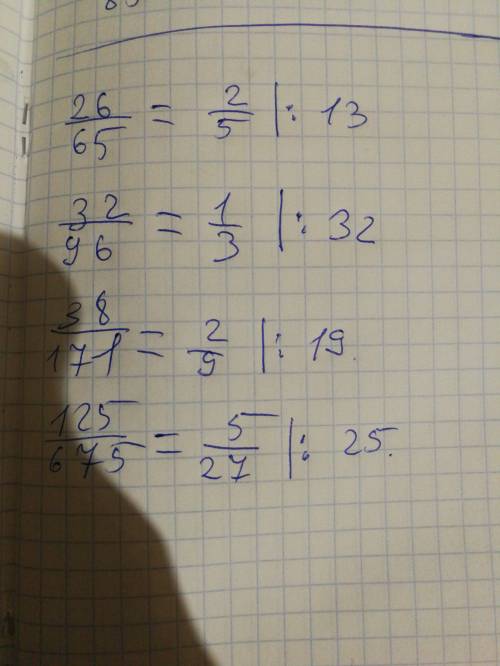 26/65 = 2/5 |: 13
32/96 = 1/3 |: 32
38/171 = 2/9 |: 19.
125/675 = 5/27 |: 25.